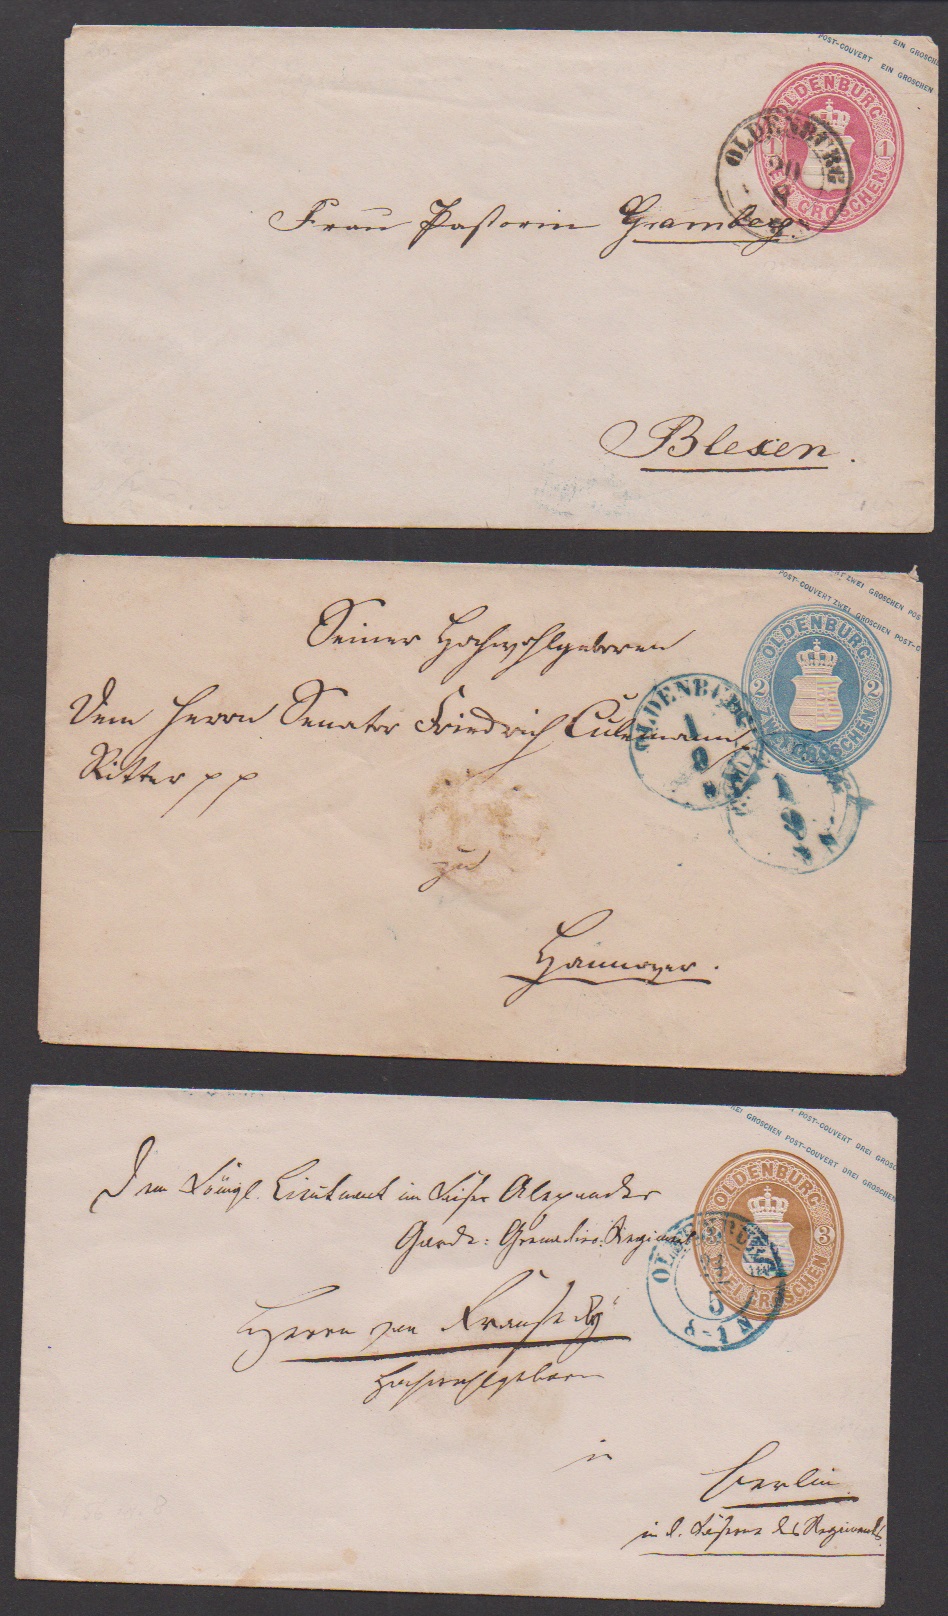 POST-COUVERT EIN GROSCHEN
EIN GROSCHEN
OLDENBURG
1 1
EIN GROSCHEN
OLDENBURG
Frau Pastorin Gramberg
Blexen.
POST-COUVERT ZWEI GROSCHEN POST-C
ZWEI GROSCHEN POS
OLDENBURG
2 2
ZWEI GROSCHEN
OLDENBURG
1
9
1
9
Seiner Hochwohlgeboren
Dem Herrn Senator Friedrich Culemann,
Ritter pp
zu
Hannover.
REI GROSCHEN POST-COUVERT DREI GROSCHEN
POST-COUVERT DREI GROSC
OLDENBURG
3
DREI GROSCHEN
OLDENBURG
5
8-1 N
Dem Königl. Lieutenant im Kaiser Alexander
Garde: Grenadier: Regiment
Herrn von
Hochwohlgeboren
in
Berlin
in d. Kaserne des Regiments.